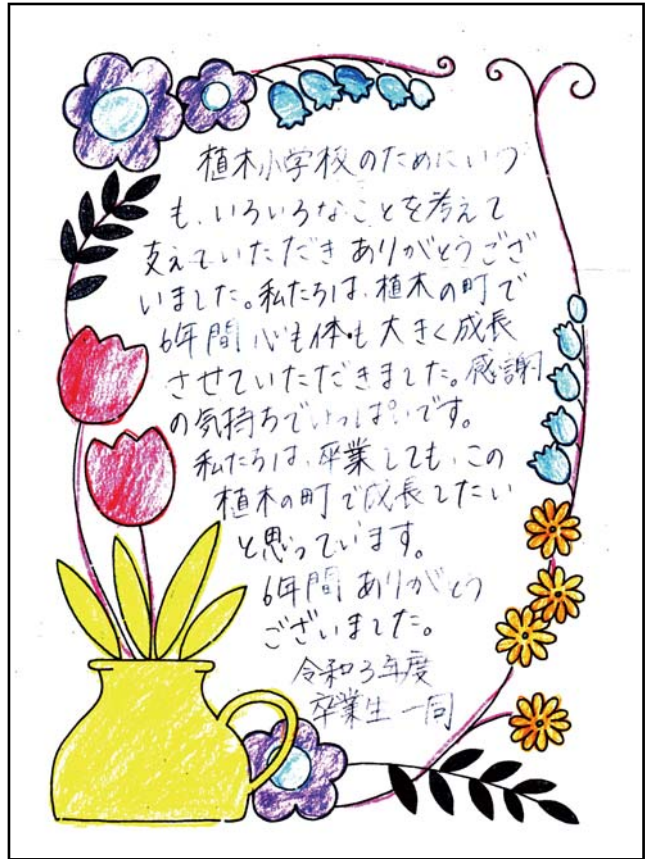 植木小学校のためにいつ
も、いろいろなことを考えて
支えていただきありがとうござ
いました。私たちは、植木の町で
6年間心も体も大きく成長
させていただきました。感謝
の気持ちでいっぱいです。
私たちは、卒業しても、この
植木の町で成長したい
と思っています。
6年間ありがとう
ございました。
令和3年度
卒業生一同